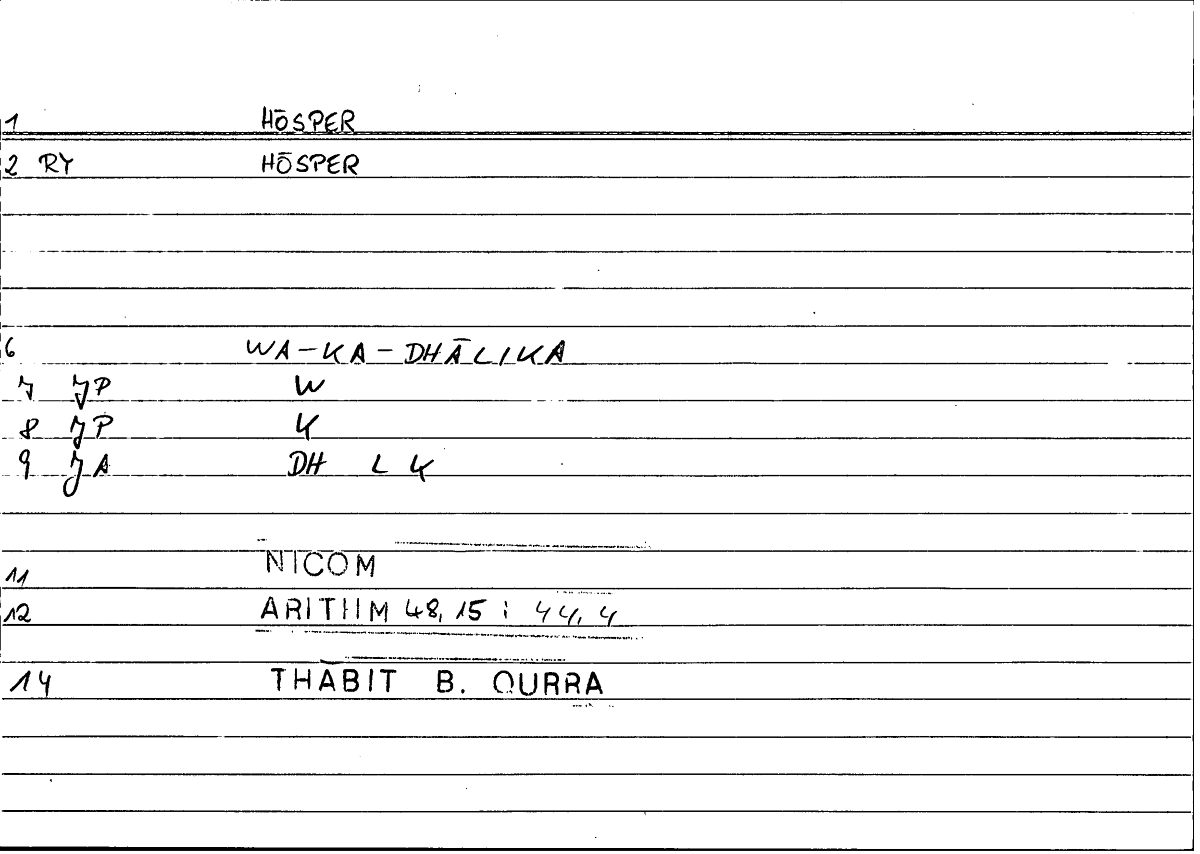 1 HŌSPER
2 RY HŌSPER
6 WA-KA-DHĀLIKA
7 JP W
8 JP K
9 JA DH L K
11 NICOM
12 ARITHM 48,15 ; 44,4
14 THĀBIT B. QURRA